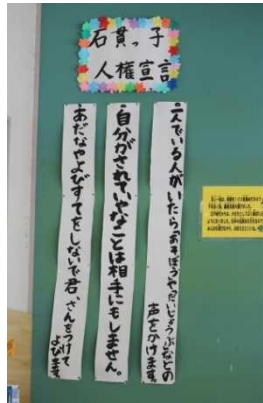 石貫っ子
人権宣言
・一人でいる人がいたら「あそぼうや」「だいじょうぶ」などの
声をかけます。
・自分がされていやなことは相手にもしません。
・あだなやよびすてをしないで君、さんをつけて
よびます。